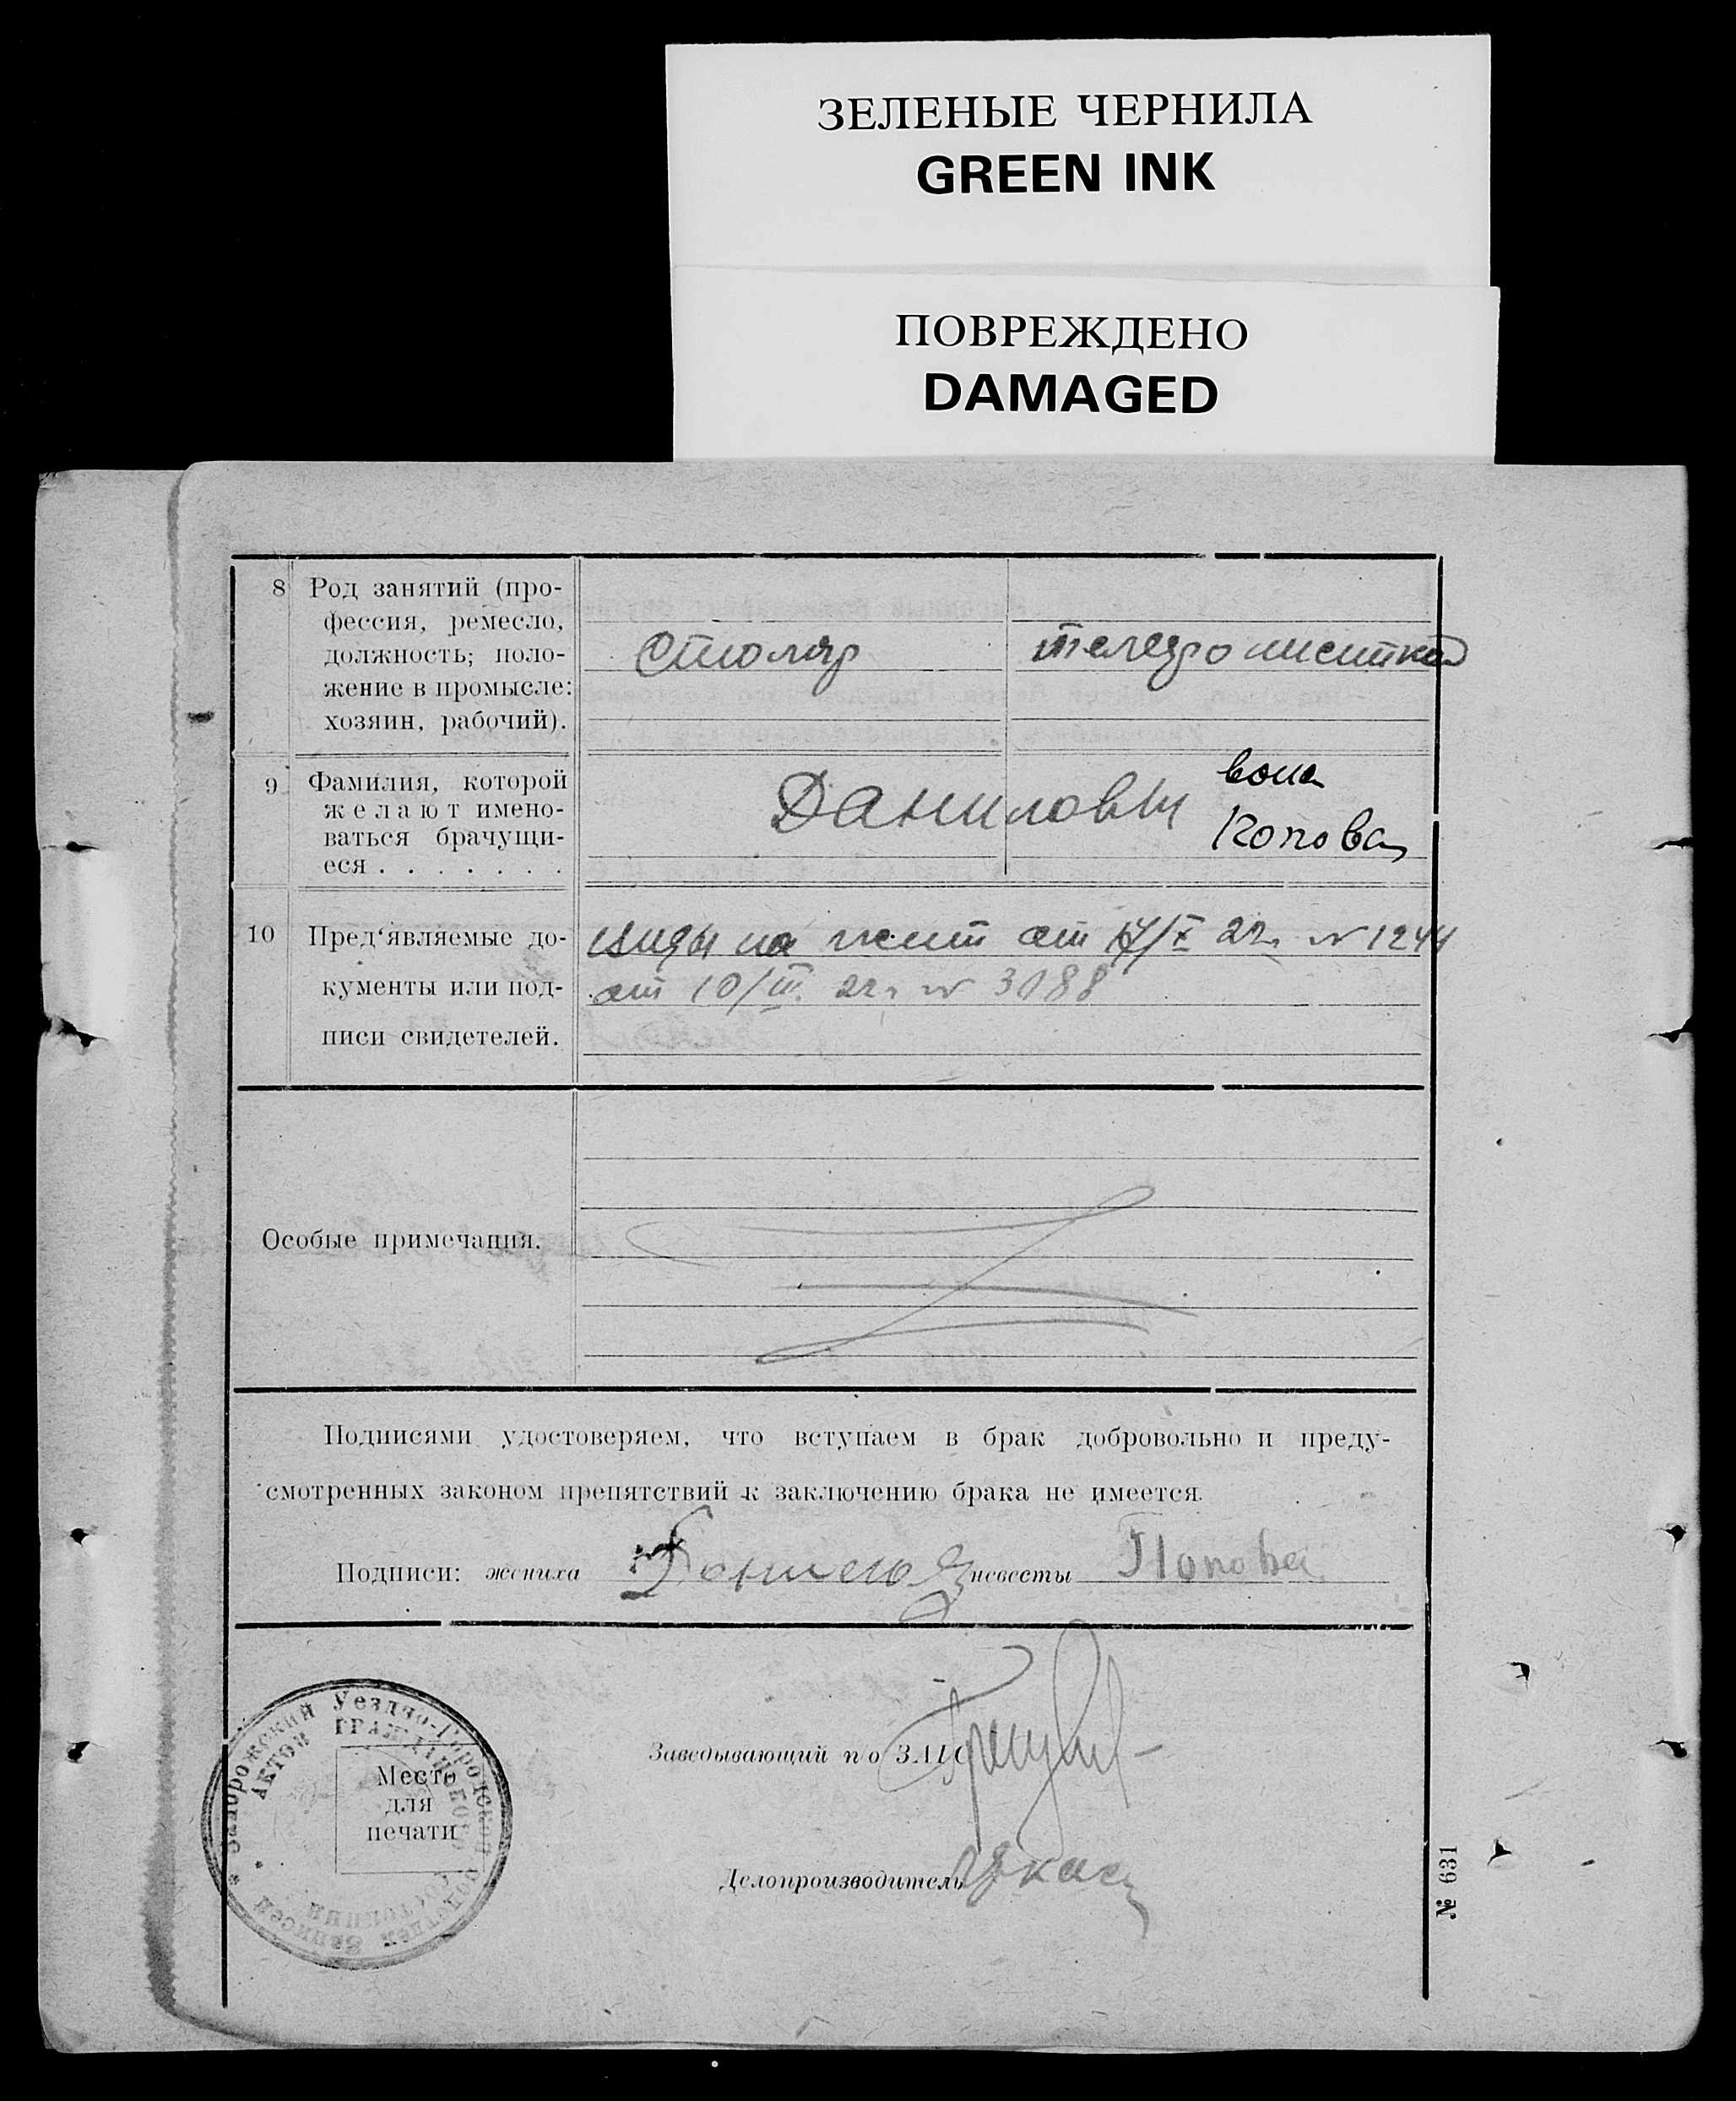 ЗЕЛЕНЫЕ ЧЕРНИЛА
GREEN INK
ПОВРЕЖДЕНО
DAMAGED
8 Род занятий (про-
фессия, ремесло,
должность; поло-
жение в промысле:
хозяин, рабочий).
Столяр
телефонистка
9 Фамилия, которой
желают имено-
ваться брачущи-
еся . . . . . . .
Даниловы
вона
Попова
10 Пред'являемые до-
кументы или под-
писи свидетелей.
виды на жит от 17/X 22г № 1244
от 10/III 22г № 3188
Особые примечания.
Подписями удостоверяем, что вступаем в брак добровольно и преду-
смотренных законом препятствий к заключению брака не имеется.
Подписи: жениха невесты Попова
Заведывающий по ЗАГС
Делопроизводитель
Запорожский Уездно-Городской подотдел Записей
АКТОВ ГРАЖДАНСКОГО СОСТОЯНИЯ
Место
для
печати
№ 631